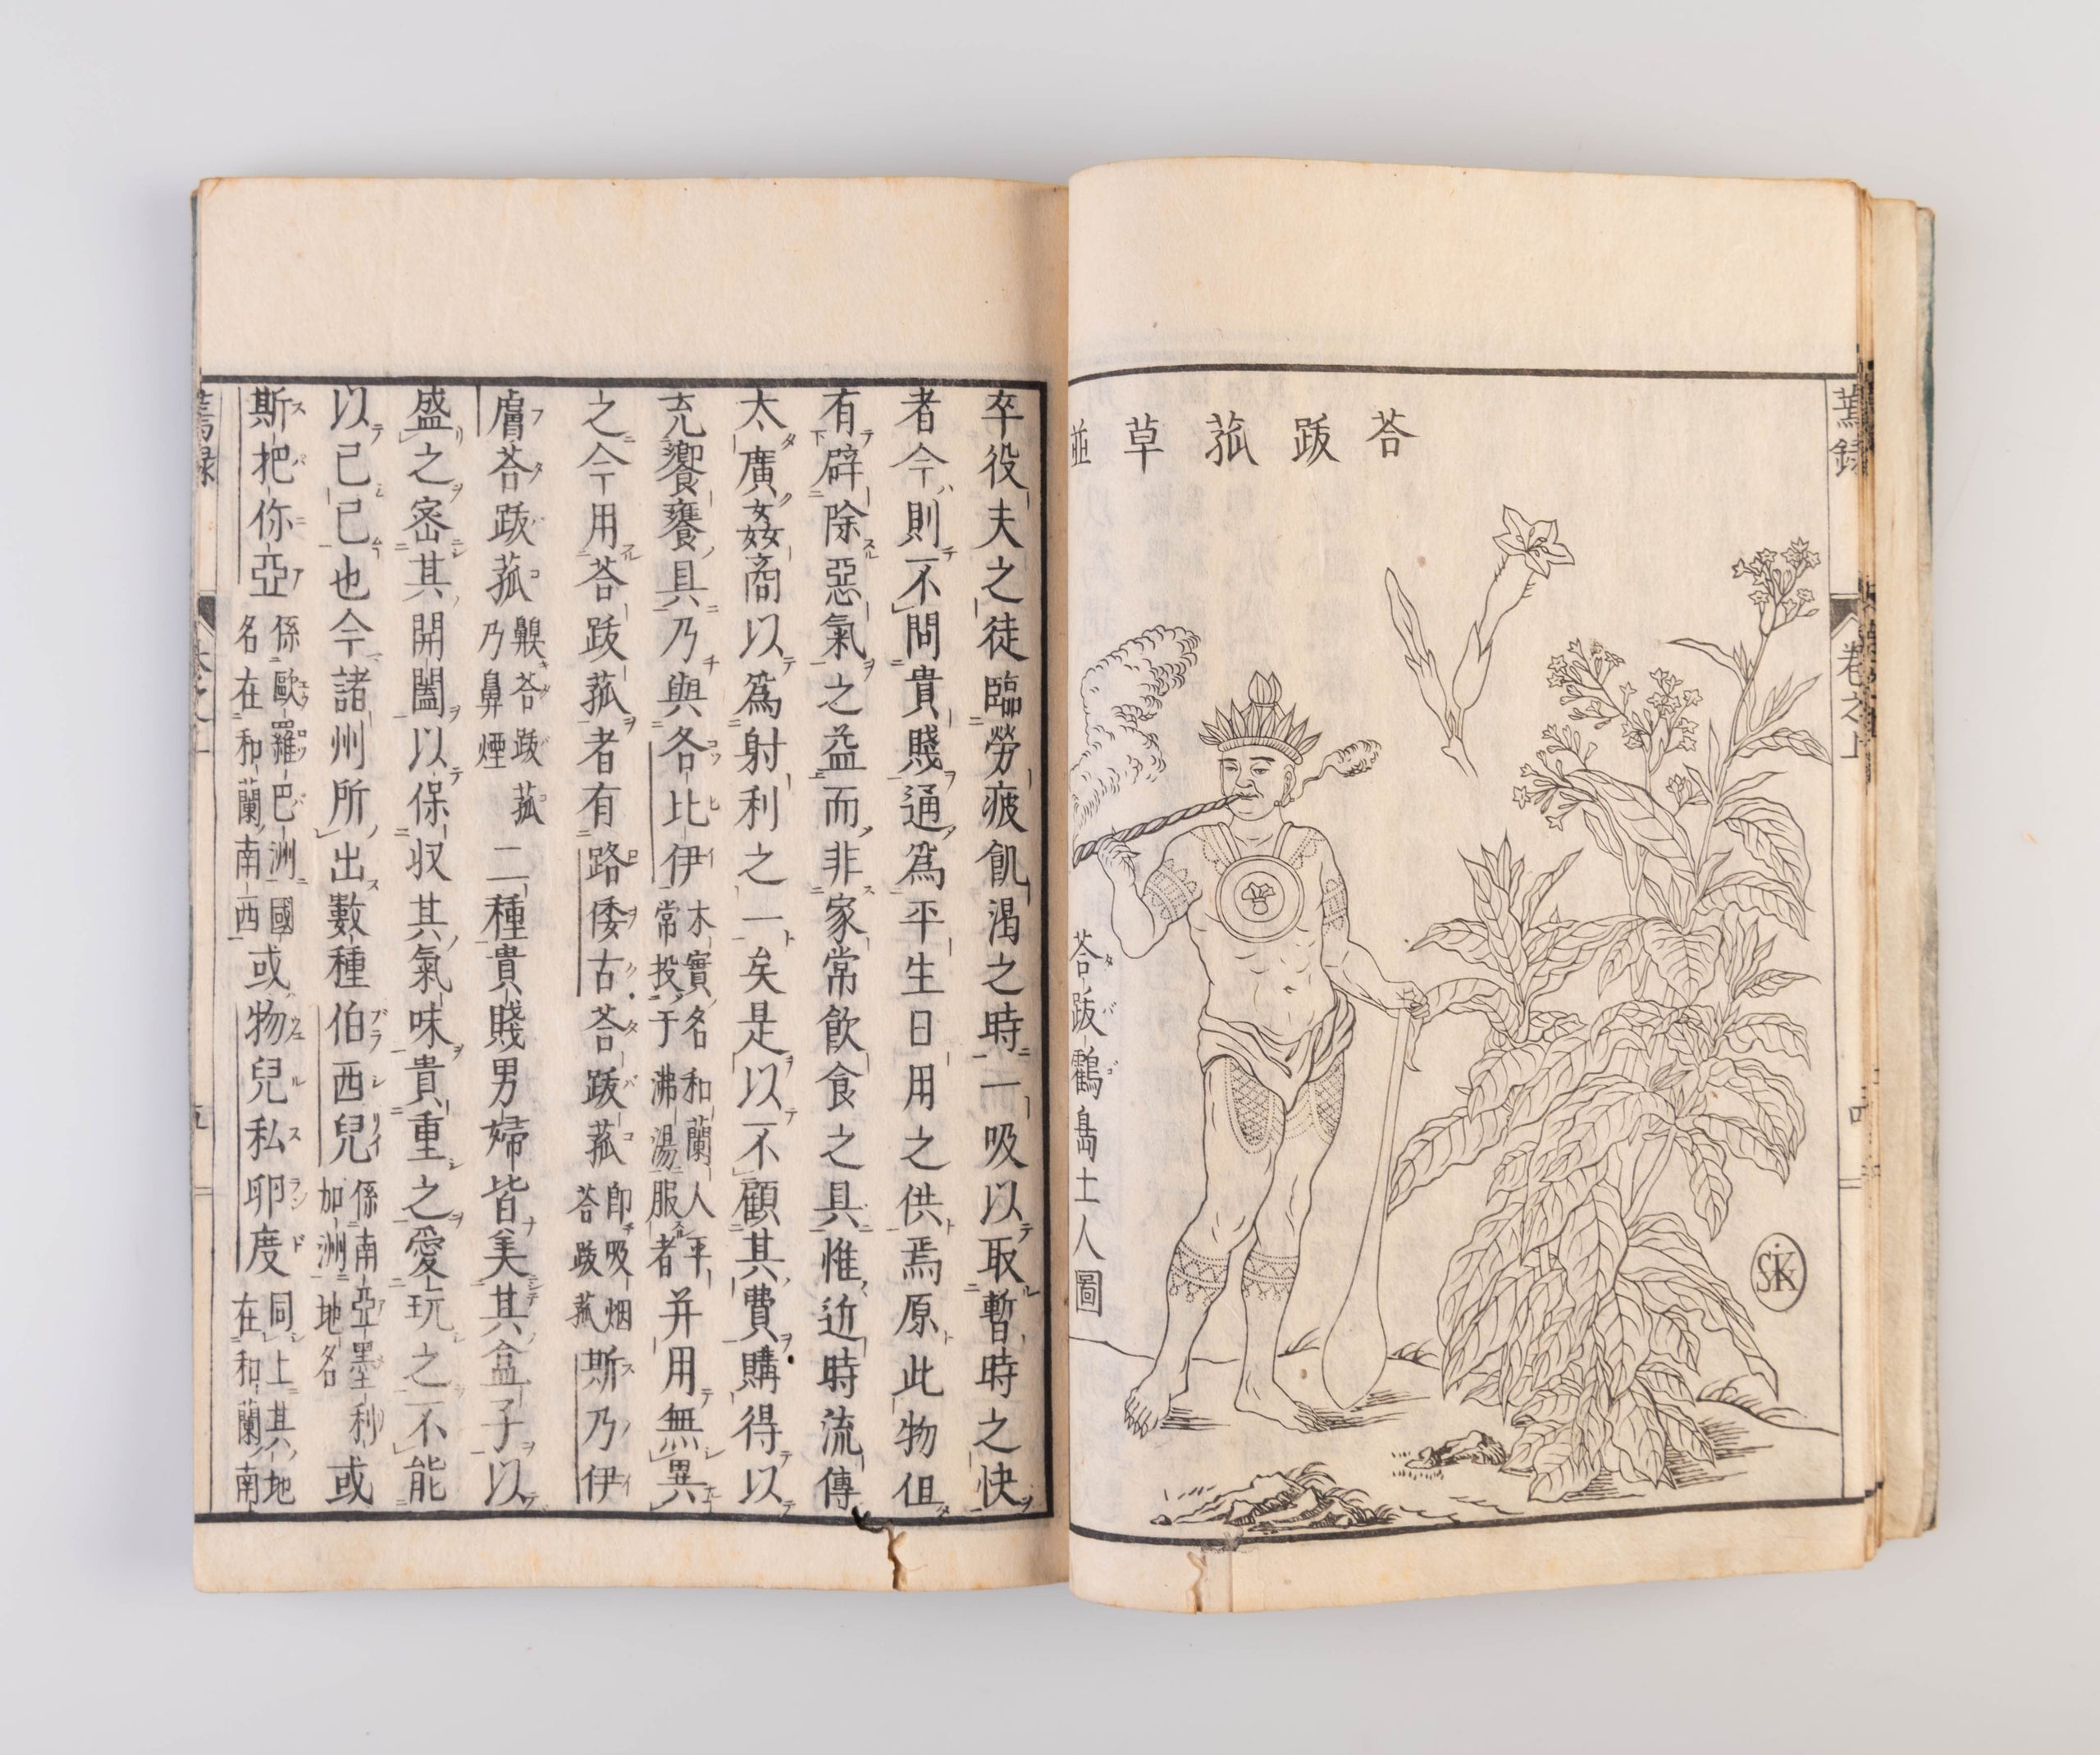 荅跋菰草並
荅跋鸖島土人圖
タバゴ
SiK
蔫録
卷之上
四
卒役夫之徒臨勞疲飢渴之時一吸以取暫時之快
者今則不問貴賤通爲平生日用之供焉原此物但
有辟除惡氣之益而非家常飲食之具惟近時流傳
太廣姦商以爲射利之一矣是以不顧其費購得以
充饗饔具乃與各比伊木實名和蘭人平常投于沸湯服者并用無異
之今用荅跋菰者有路倭古荅跋菰即吸烟荅跋菰斯乃伊
膚荅跋菰齅荅跋菰乃鼻煙二種貴賤男婦皆美其盒子以
盛之密其開闔以保収其氣味貴重之愛玩之不能
以已已也今諸州所出數種伯西兒係南亞墨利加洲地名或
斯把你亞係歐羅巴洲國名在和蘭南西或物兒私卵度同上其地在和蘭南
蔫録
五